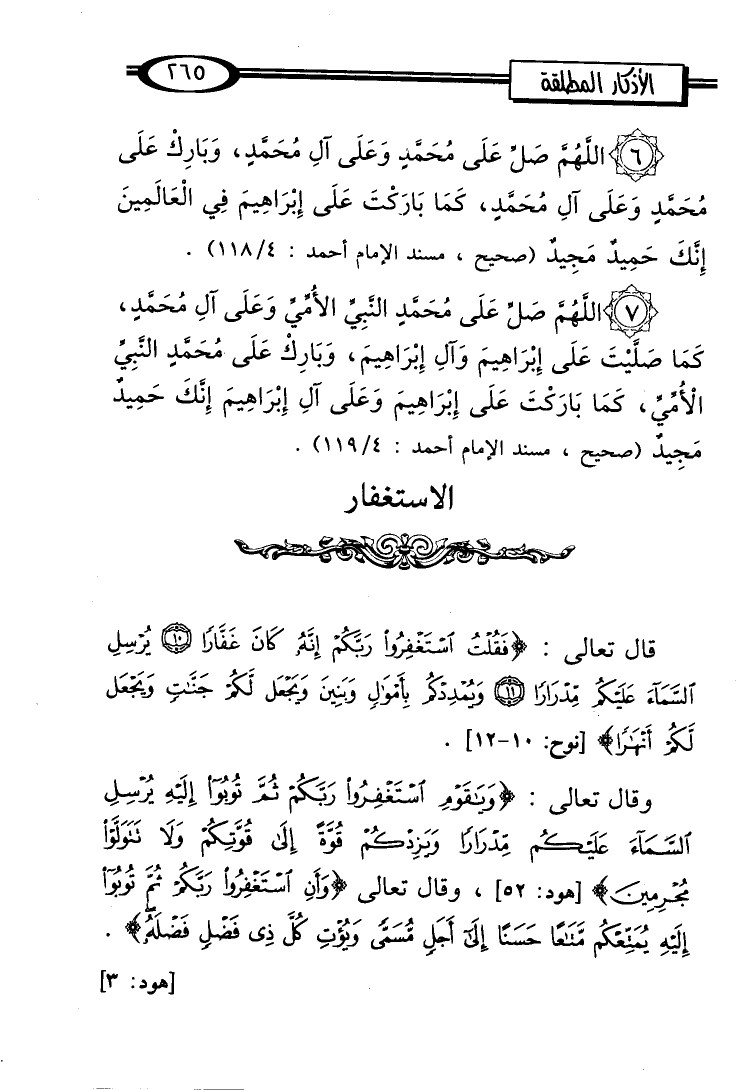 الأذكار المطلقة ٢٦٥
٦ اللَّهُمَّ صَلِّ عَلَى مُحَمَّدٍ وَعَلَى آلِ مُحَمَّدٍ، وَبَارِكْ عَلَى
مُحَمَّدٍ وَعَلَى آلِ مُحَمَّدٍ، كَمَا بَارَكْتَ عَلَى إِبْرَاهِيمَ فِي الْعَالَمِينَ
إِنَّكَ حَمِيدٌ مَجِيدٌ (صحيح ، مسند الإمام أحمد : ١١٨/٤) .
٧ اللَّهُمَّ صَلِّ عَلَى مُحَمَّدٍ النَّبِيِّ الأُمِّيِّ وَعَلَى آلِ مُحَمَّدٍ،
كَمَا صَلَّيْتَ عَلَى إِبْرَاهِيمَ وَآلِ إِبْرَاهِيمَ، وَبَارِكْ عَلَى مُحَمَّدٍ النَّبِيِّ
الْأُمِّيِّ، كَمَا بَارَكْتَ عَلَى إِبْرَاهِيمَ وَعَلَى آلِ إِبْرَاهِيمَ إِنَّكَ حَمِيدٌ
مَجِيدٌ (صحيح ، مسند الإمام أحمد : ١١٩/٤) .
الاستغفار
قال تعالى : ﴿فَقُلْتُ ٱسْتَغْفِرُوا۟ رَبَّكُمْ إِنَّهُۥ كَانَ غَفَّارًا ١٠ يُرْسِلِ
ٱلسَّمَآءَ عَلَيْكُم مِّدْرَارًا ١١ وَيُمْدِدْكُم بِأَمْوَٰلٍ وَبَنِينَ وَيَجْعَل لَّكُمْ جَنَّـٰتٍ وَيَجْعَل
لَّكُمْ أَنْهَـٰرًا﴾ [نوح: ١٠-١٢] .
وقال تعالى : ﴿وَيَـٰقَوْمِ ٱسْتَغْفِرُوا۟ رَبَّكُمْ ثُمَّ تُوبُوٓا۟ إِلَيْهِ يُرْسِلِ
ٱلسَّمَآءَ عَلَيْكُم مِّدْرَارًا وَيَزِدْكُمْ قُوَّةً إِلَىٰ قُوَّتِكُمْ وَلَا تَتَوَلَّوْا۟
مُجْرِمِينَ﴾ [هود: ٥٢] ، وقال تعالى ﴿وَأَنِ ٱسْتَغْفِرُوا۟ رَبَّكُمْ ثُمَّ تُوبُوٓا۟
إِلَيْهِ يُمَتِّعْكُم مَّتَـٰعًا حَسَنًا إِلَىٰٓ أَجَلٍ مُّسَمًّى وَيُؤْتِ كُلَّ ذِى فَضْلٍ فَضْلَهُۥ﴾ .
[هود: ٣]